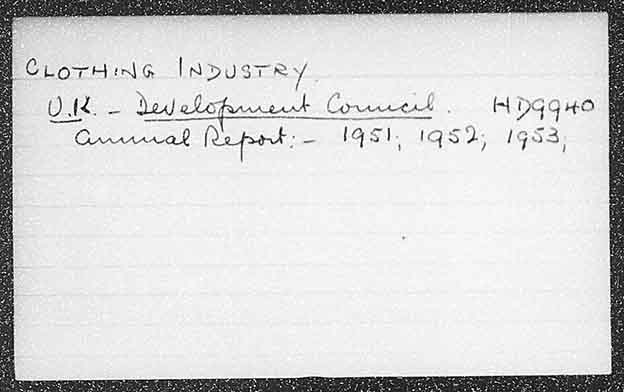 CLOTHING INDUSTRY.
U.K. - Development Council. HD9940
Annual Report:- 1951; 1952; 1953;